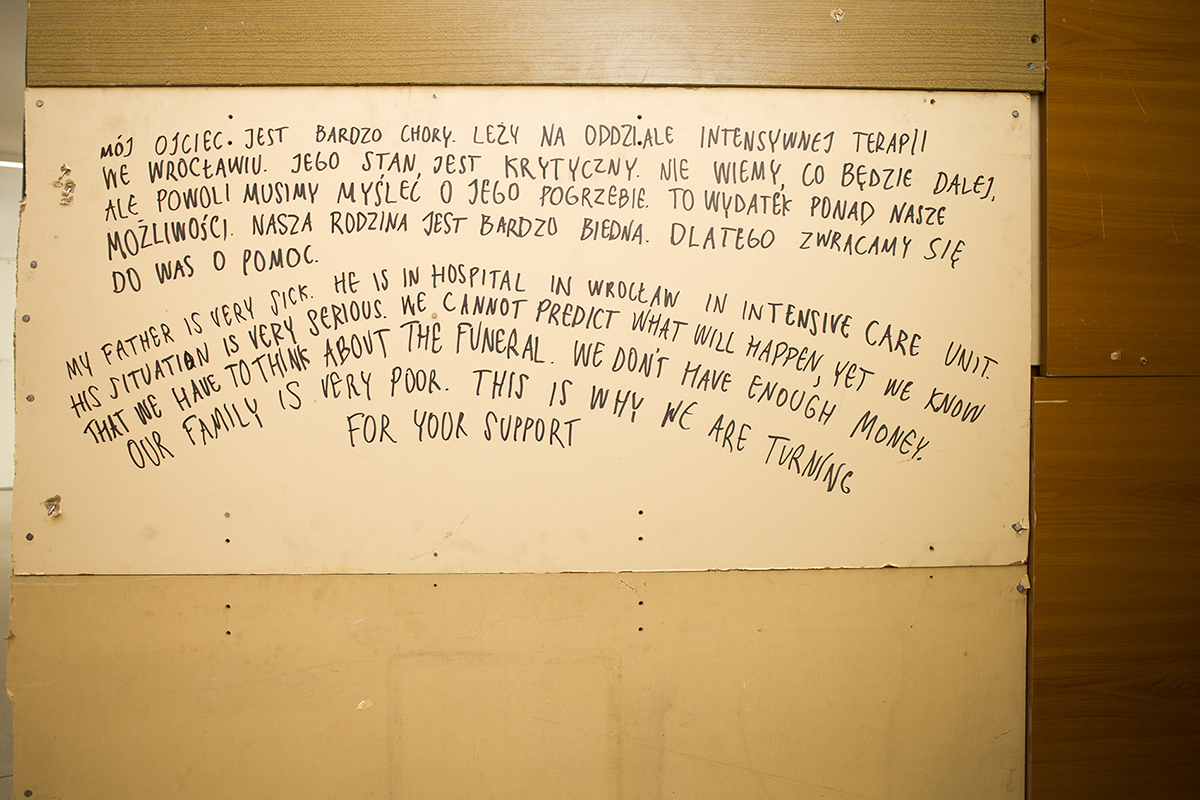 MÓJ OJCIEC JEST BARDZO CHORY. LEŻY NA ODDZIALE INTENSYWNEJ TERAPII
WE WROCŁAWIU. JEGO STAN JEST KRYTYCZNY. NIE WIEMY, CO BĘDZIE DALEJ,
ALE POWOLI MUSIMY MYŚLEĆ O JEGO POGRZEBIE. TO WYDATEK PONAD NASZE
MOŻLIWOŚCI. NASZA RODZINA JEST BARDZO BIEDNA. DLATEGO ZWRACAMY SIĘ
DO WAS O POMOC.
MY FATHER IS VERY SICK. HE IS IN HOSPITAL IN WROCŁAW IN INTENSIVE CARE UNIT.
HIS SITUATION IS VERY SERIOUS. WE CANNOT PREDICT WHAT WILL HAPPEN, YET WE KNOW
THAT WE HAVE TO THINK ABOUT THE FUNERAL. WE DON'T HAVE ENOUGH MONEY.
OUR FAMILY IS VERY POOR. THIS IS WHY WE ARE TURNING
FOR YOUR SUPPORT